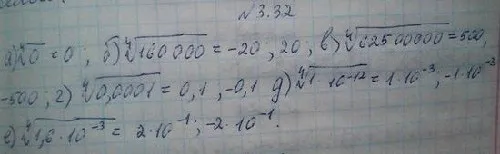 №3.32
а) ∜0 = 0; б) ∜160 000 = -20, 20, в) ∜62500000 = 500,
-500; г) ∜0,0001 = 0,1, -0,1 д) ∜1·10⁻¹² = 1·10⁻³, -1·10⁻³
е) ∜1,6·10⁻³ = 2·10⁻¹; -2·10⁻¹.